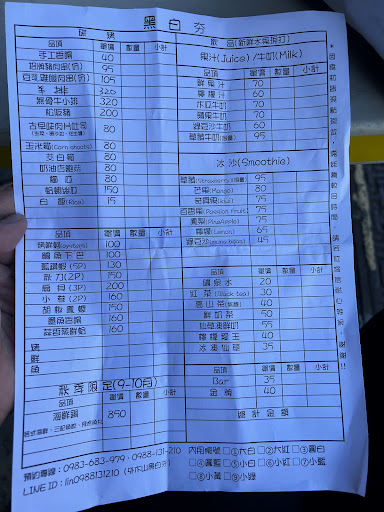 黑白夯
燒烤
品項 單價 數量 小計
手工香腸 40
招牌豬肉串(份) 95
豆乳雞腿肉串(份) 105
牛排 320
無骨牛小排 320
松阪豬 200
古早味肉片吐司 80
玉米筍(Corn shoots) 80
茭白筍 80
奶油金針菇 80
絲瓜 80
蛤蜊絲瓜 150
白飯(Rice) 15
品項 單價 數量 小計
烤鮮蚵(oysters) 100
鯛魚下巴 100
藍鑽蝦(5P) 130
透刀(2P) 150
扇貝(3P) 200
小卷(2P) 160
胡椒鳳螺 150
墨魚香腸 160
蒜香蒸鮮蛤 160
烤鮮魚
秋季限定(9-10月)
品項 單價 數量 小計
海鮮鍋 850
預約專線:0983-683-979、0988-131-210
LINE ID:lin0988131210 (外木山黑白夯)
飲品(新鮮水果現打)
果汁(Juice)/牛奶(Milk)
品項 單價 數量 小計
鮮果汁 70
檸檬汁 60
木瓜牛奶 70
蘋果牛奶 70
綠豆沙牛奶 60
草莓牛奶(限量) 95
冰沙(Smoothie)
草莓(Strawberry)(限量) 95
芒果(Mango) 80
奇異果(kiwi) 75
百香果(Passion fruit) 75
鳳梨(PineApple) 75
檸檬(Lemon) 65
綠豆沙(mung bean) 45
品項 單價 數量 小計
礦泉水 20
紅茶(Black tea) 30
高山茶(無糖) 40
鮮奶茶 50
仙草凍鮮奶 55
檸檬愛玉 40
冰凍仙草 35
品項 單價 數量 小計
Bar 35
金牌 40
總計金額
內用桌號 □①大白 □②大紅 □③圓白
□④圓藍 □⑤小白 □⑥小紅 □⑦小藍
□⑧小黃 □⑨小綠